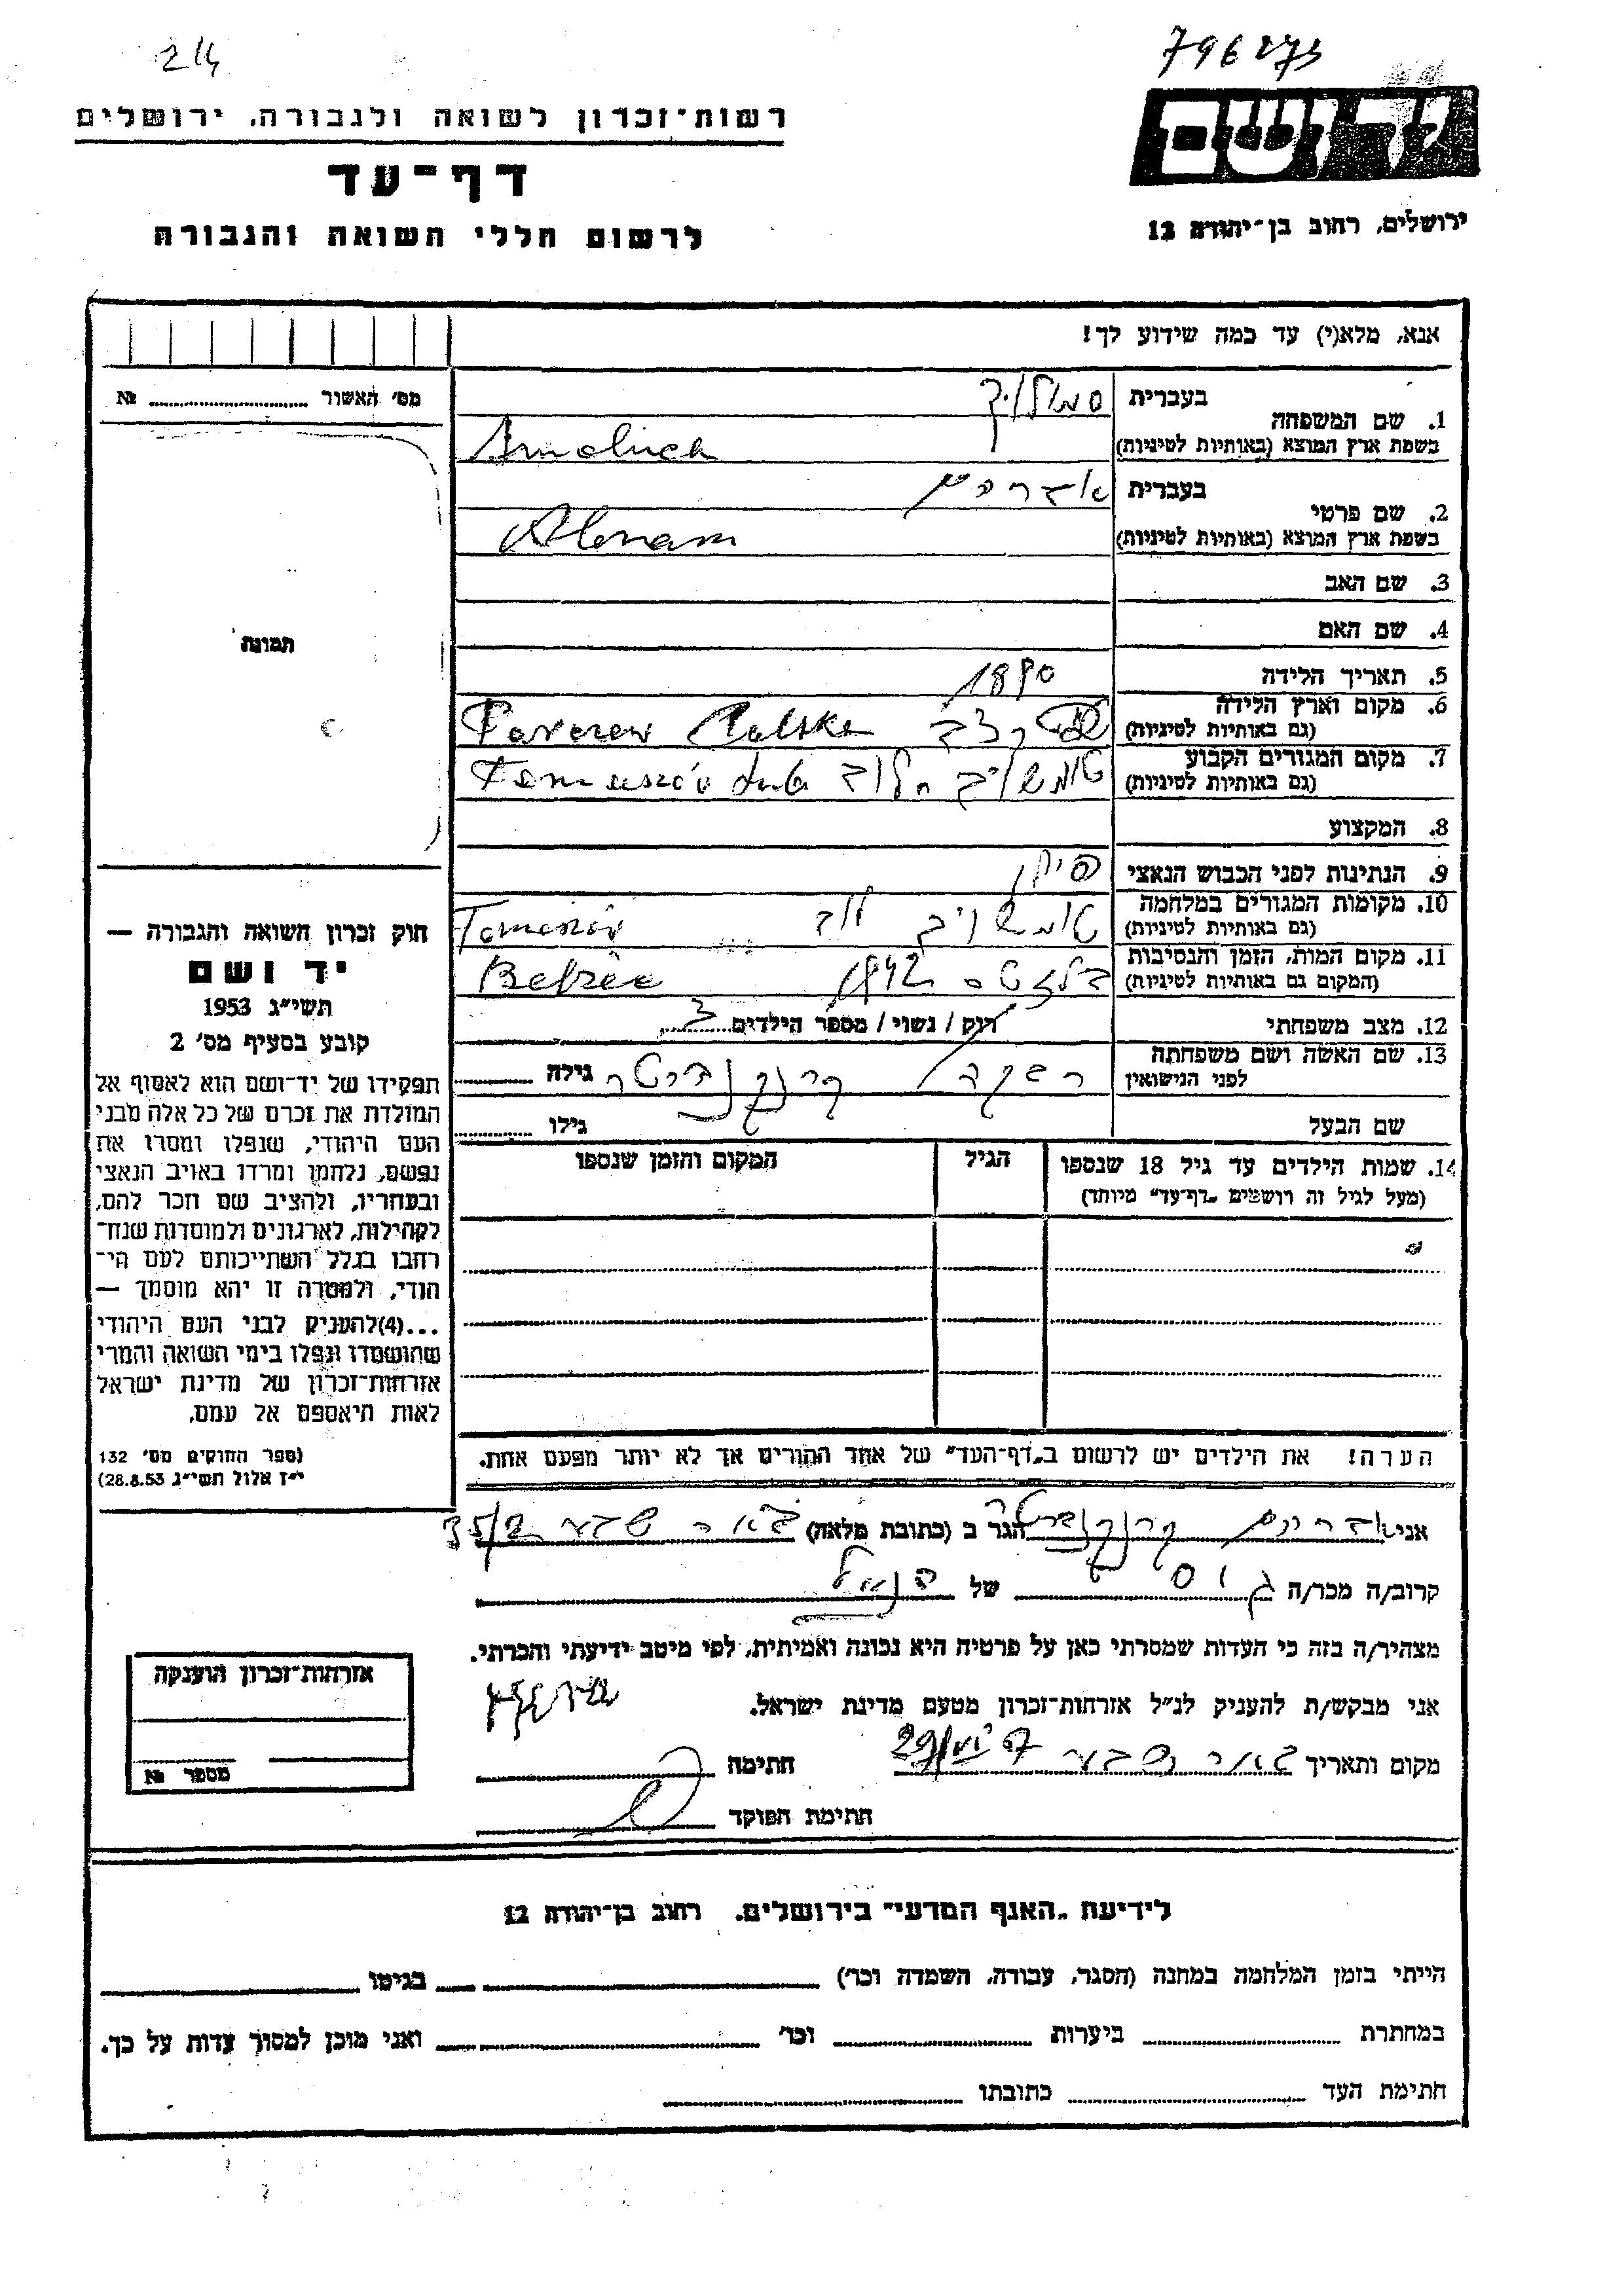 214
796273
רשות־זכרון לשואה ולגבורה, ירושלים
דף־עד
לרשום חללי השואה והגבורה
יד ושם
ירושלים, רחוב בן־יהודה 12
אנא, מלא(י) עד כמה שידוע לך!
מס' האשור № 
1. שם המשפחה
בעברית סמוליך
בשפת ארץ המוצא (באותיות לטיניות) Smoliuch
2. שם פרטי
בעברית אברהם
בשפת ארץ המוצא (באותיות לטיניות) Abram
3. שם האב
4. שם האם
5. תאריך הלידה 1890
6. מקום וארץ הלידה
(גם באותיות לטיניות) Polska
7. מקום המגורים הקבוע
(גם באותיות לטיניות) טומשוב Tomaszów Lub
8. המקצוע
9. הנתינות לפני הכבוש הנאצי פולין
10. מקומות המגורים במלחמה
(גם באותיות לטיניות) טומשוב לוב Tomaszów
11. מקום המות, הזמן והנסיבות
(המקום גם באותיות לטיניות) 1942 Bełżec
12. מצב משפחתי רוק / נשוי / מספר הילדים
13. שם האשה ושם משפחתה
לפני הנישואין רבקה גילה
שם הבעל גילו
14. שמות הילדים עד גיל 18 שנספו
(מעל לגיל זה רושמים „דף־עד" מיוחד)
הגיל
המקום והזמן שנספו
תמונה
חוק זכרון השואה והגבורה —
יד ושם
תשי"ג 1953
קובע בסעיף מס' 2
תפקידו של יד־ושם הוא לאסוף אל
המולדת את זכרם של כל אלה מבני
העם היהודי, שנפלו ומסרו את
נפשם, נלחמו ומרדו באויב הנאצי
ובעוזריו, ולהציב שם וזכר להם,
לקהילות, לארגונים ולמוסדות שנח־
רבו בגלל השתייכותם לעם הי־
הודי, ולמטרה זו יהא מוסמך —
...(4)להעניק לבני העם היהודי
שהושמדו ונפלו בימי השואה והמרי
אזרחות־זכרון של מדינת ישראל
לאות היאספם אל עמם.
(ספר החוקים מס' 132
י"ז אלול תשי"ג 28.8.53)
הערה! את הילדים יש לרשום ב„דף־העד" של אחד ההורים אך לא יותר מפעם אחת.
אני אברהם הגר ב (כתובת מלאה) באר שבע 35/2
קרוב/ה מכר/ה גיס של הנ"ל
מצהיר/ה בזה כי העדות שמסרתי כאן על פרטיה היא נכונה ואמיתית, לפי מיטב ידיעתי והכרתי.
אני מבקש/ת להעניק לנ"ל אזרחות־זכרון מטעם מדינת ישראל.
מקום ותאריך באר שבע חתימה
חתימת הפוקד
אזרחות־זכרון הוענקה
מספר №
לידיעת „האגף המדעי" בירושלים, רחוב בן־יהודה 12
הייתי בזמן המלחמה במחנה (הסגר, עבודה, השמדה וכו') בגיטו
במחתרת ביערות וכו' ואני מוכן למסור עדות על כך.
חתימת העד כתובתו